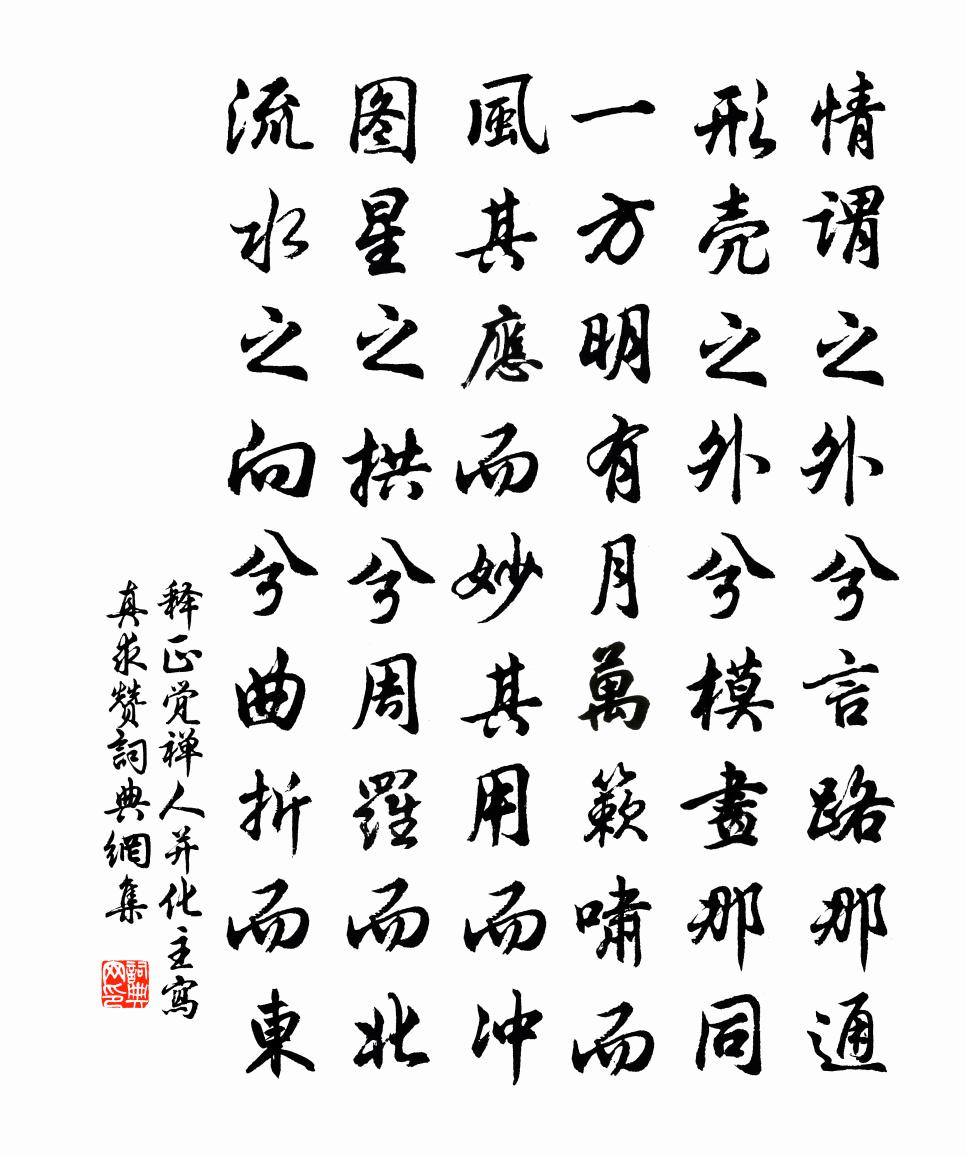 情谓之外兮言路那通
形壳之外兮模畫那同
一方明有月萬籁嘯而
風其應而妙其用而冲
图星之拱兮周羅而北
流水之向兮曲折而東
释正觉禅人并化主寫
真求赞詞典網集
詞典